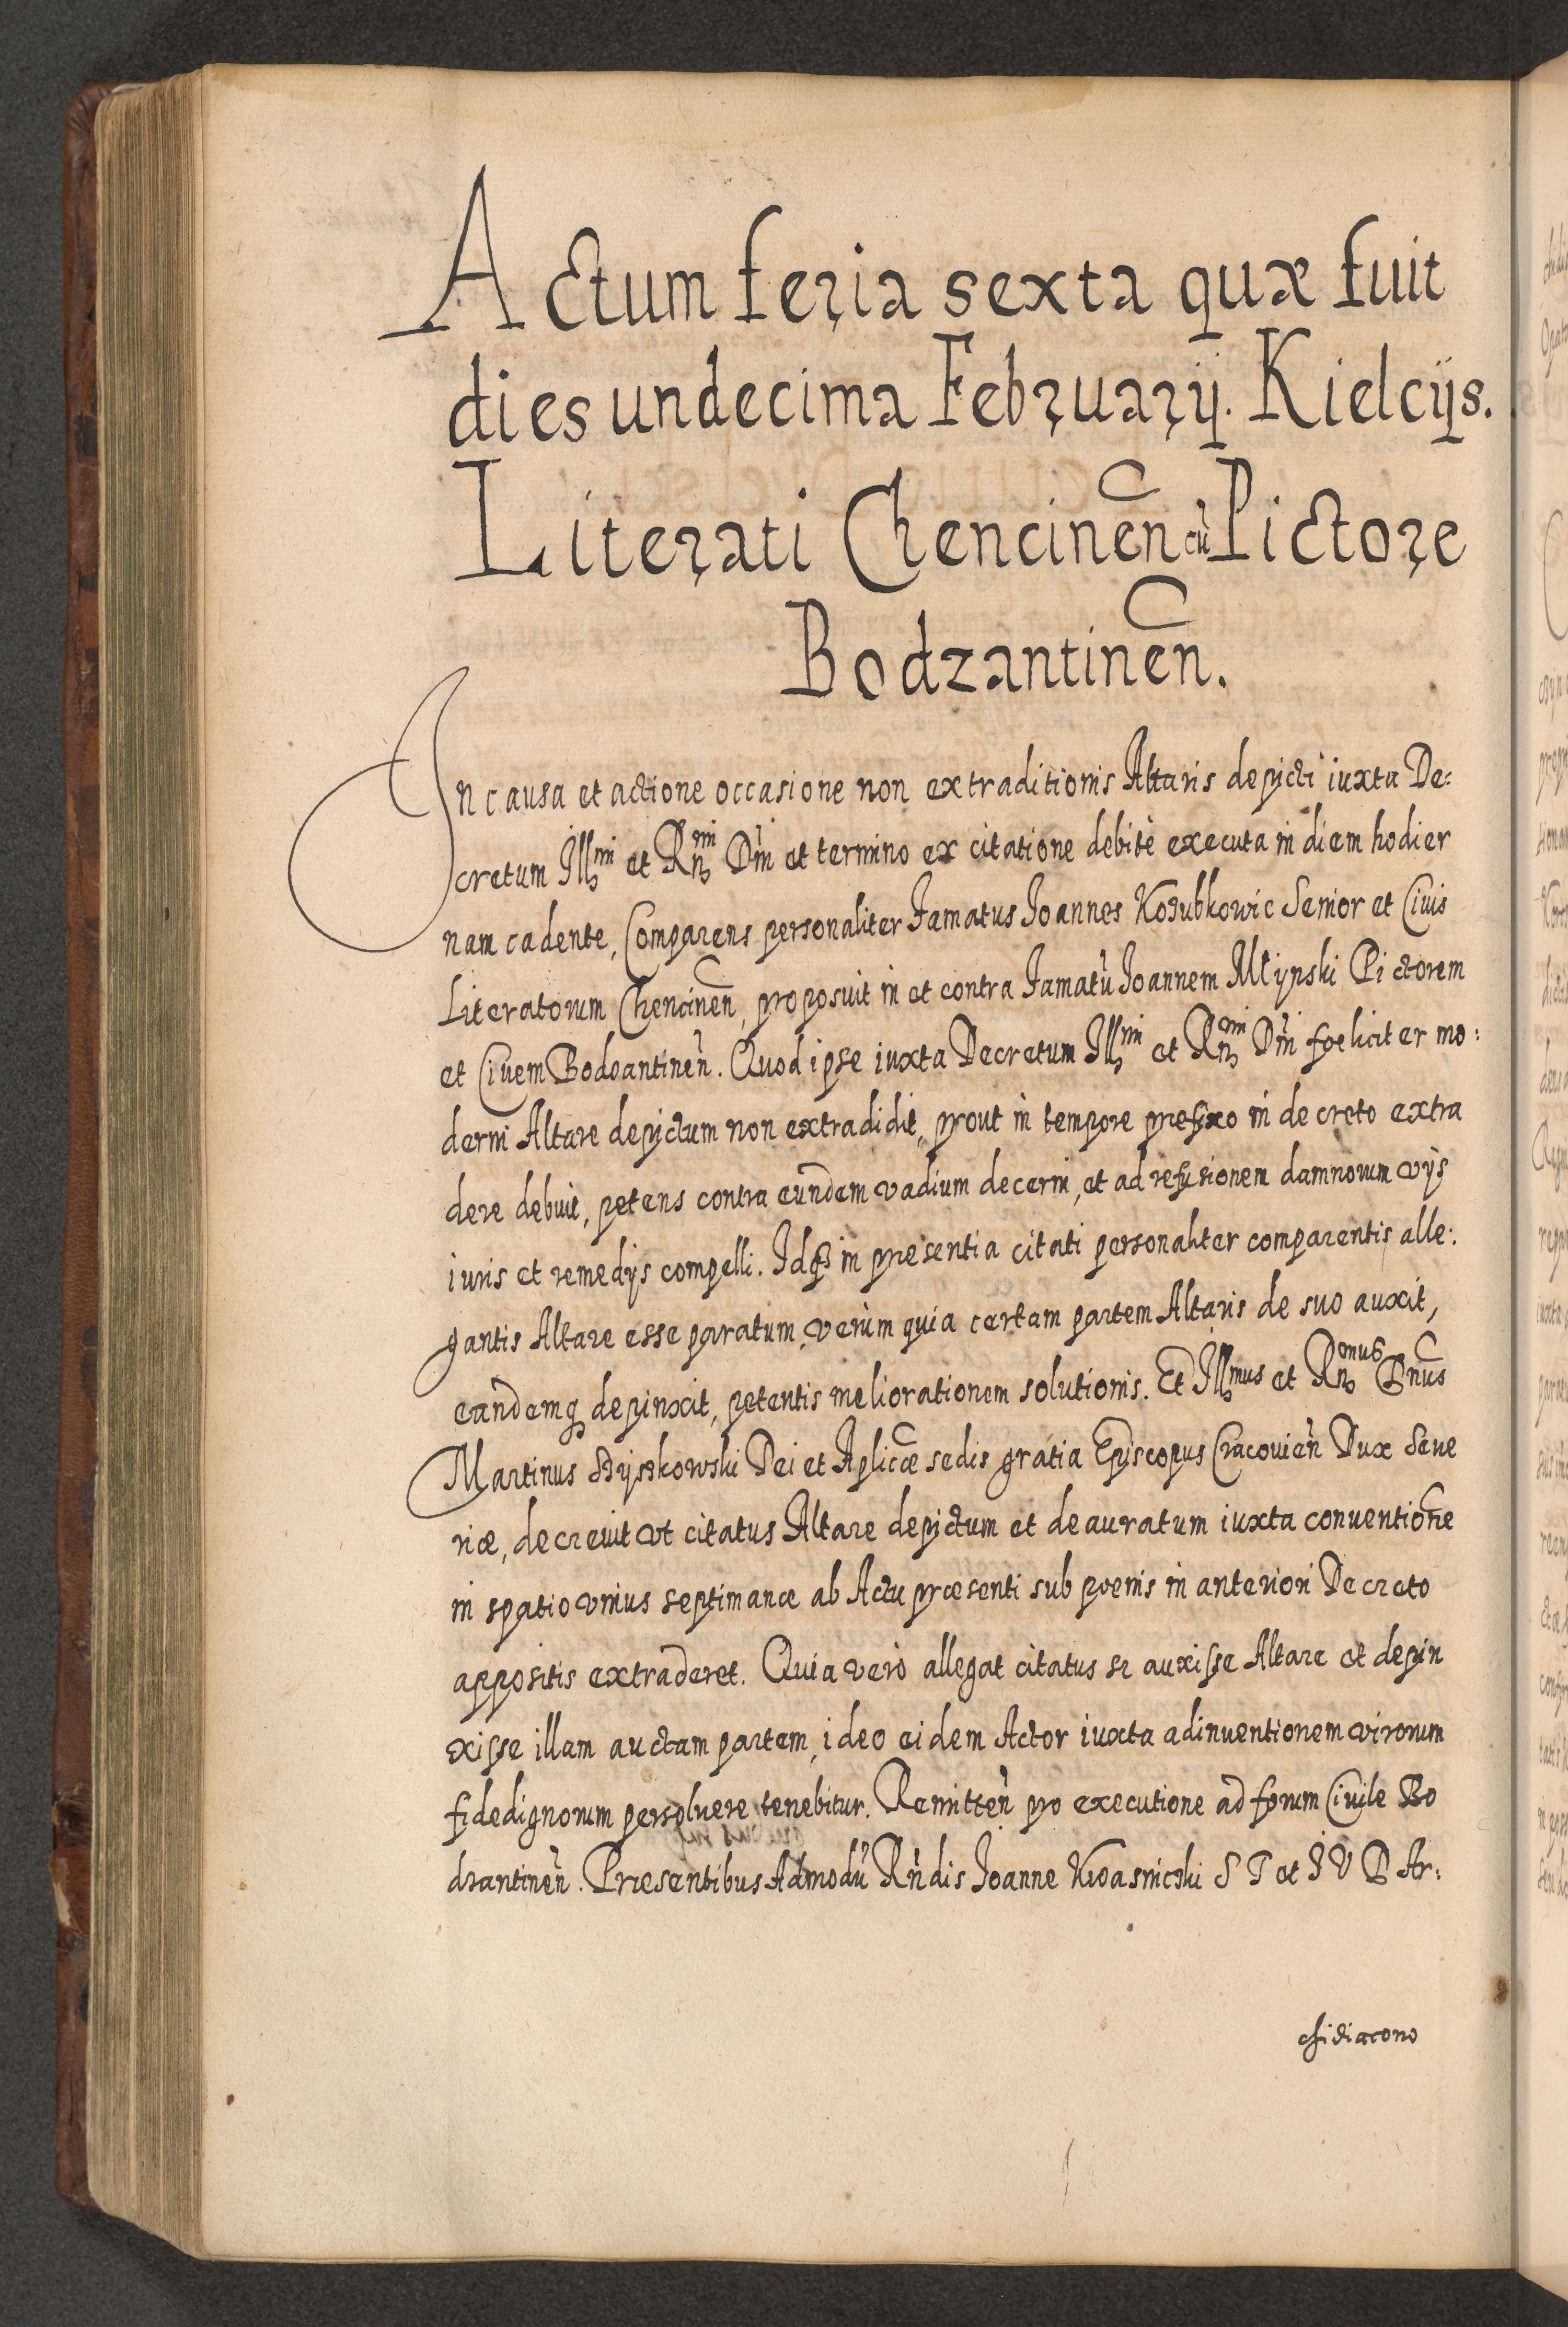 Actum feria sexta quæ fuit
dies undecima Februarij. Kielcijs.
Literati Chencinen̄ cū Pictore
Bodzantinen̄.
In causa et actione occasione non extraditionis Altaris depicti iuxta De:
cretum Illmi et Rmi Dn̄i et termino ex citatione debitè executa in diem hodier
nam cadente, Comparens personaliter Famatus Joannes Kozubkowic Senior et Ciuis
Literatorum Chencinen̄, proposuit in et contra Famatū Joannem Młynski Pictorem
et Ciuem Bodzantinen̄. Quod ipse iuxta Decretum Illmi et Rmi Dn̄i foeliciter mo:
derni Altare depictum non extradidit, prout in tempore prefixo in decreto extra
dere debuit, petens contra eundem vadium decerni, et ad refusionem damnorum vijs
iuris et remedijs compelli. Idq3 in presentia citati personaliter comparentis alle:
gantis Altare esse paratum, verùm quia certam partem Altaris de suo auxit,
eandemq depinxit, petentis meliorationem solutionis. Et Illmus et Rmus Dn̄us
Martinus Szyszkowski Dei et Aplicæ sedis gratia Episcopus Cracouien̄ Dux Seue
riæ, decreuit vt citatus Altare depictum et deauratum iuxta conuentione
in spatio vnius septimanæ ab Actu præsenti sub poenis in anteriori Decreto
appositis extraderet. Quia verò allegat citatus se auxisse Altare et depin
xisse illam auctam partem, ideo eidem Actor iuxta adinuentionem virorum
fidedignorum persoluere tenebitur. Remitten̄ pro executione ad forum Ciuile Bo
dzantinen̄. Præsentibus Admodū Rn̄dis Joanne Kwasniczki S T et J V D Ar:
chidiacono